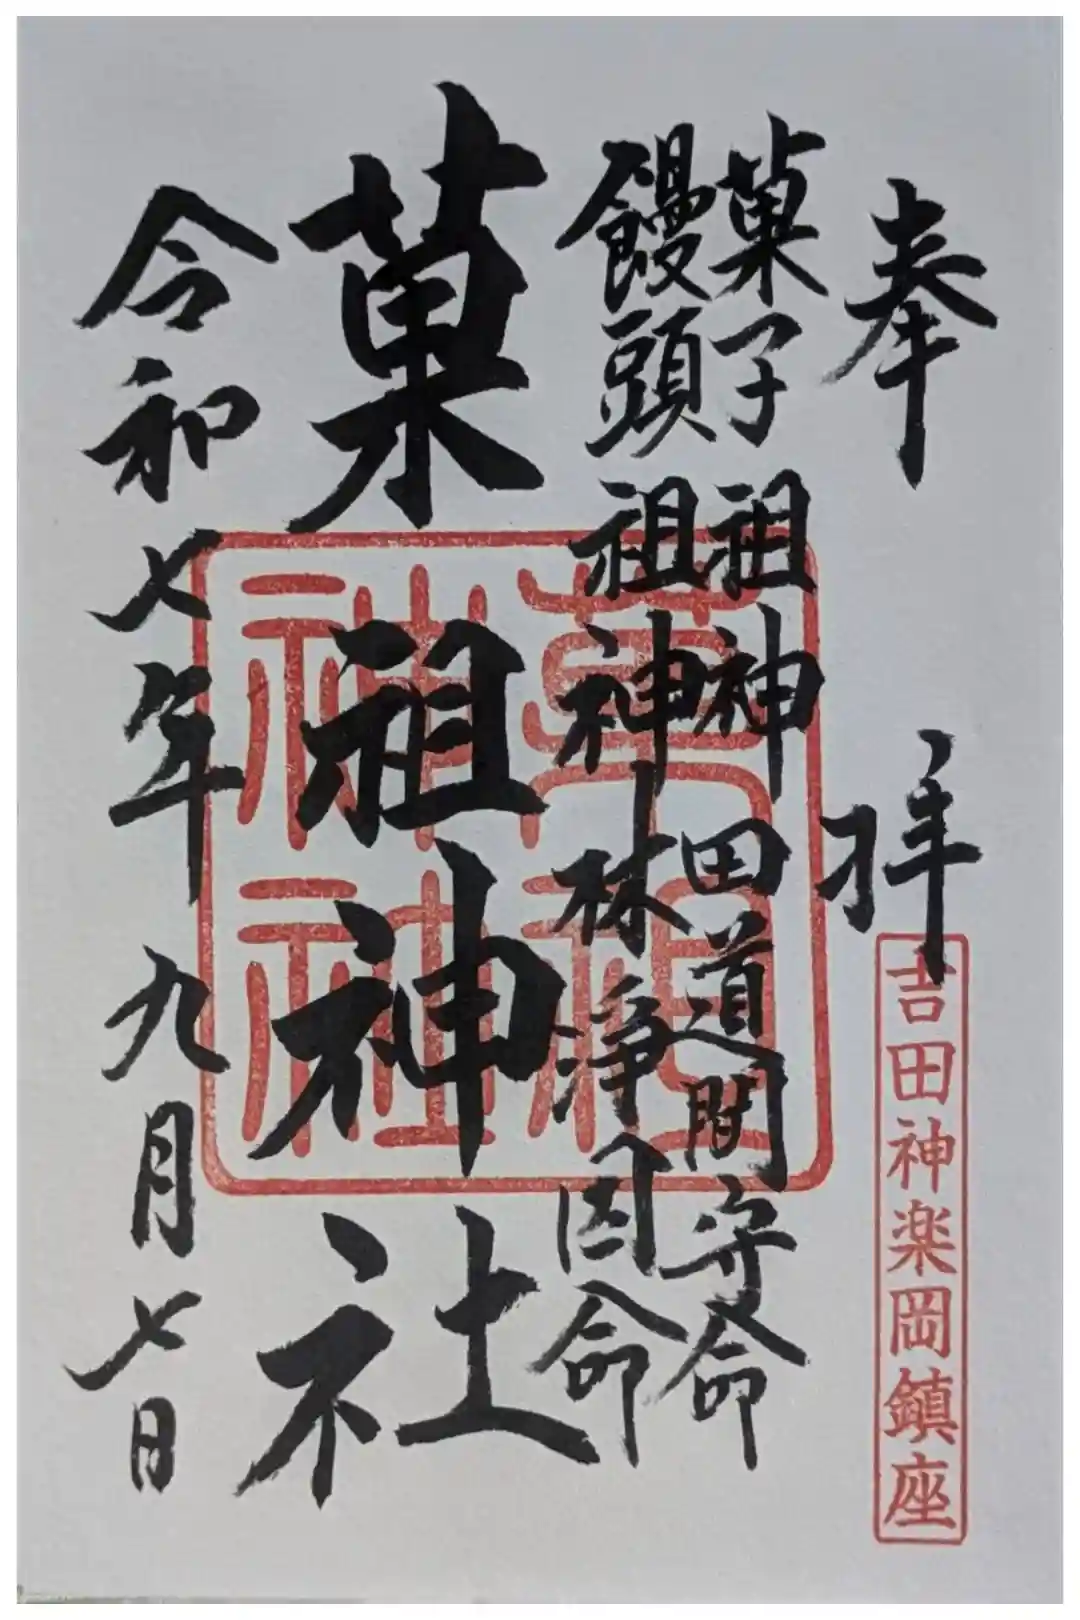 奉拝
吉田神楽岡鎮座
菓子祖神 田道間守命
饅頭祖神 林浄因命
菓祖神社
菓祖
神社
令和七年九月七日